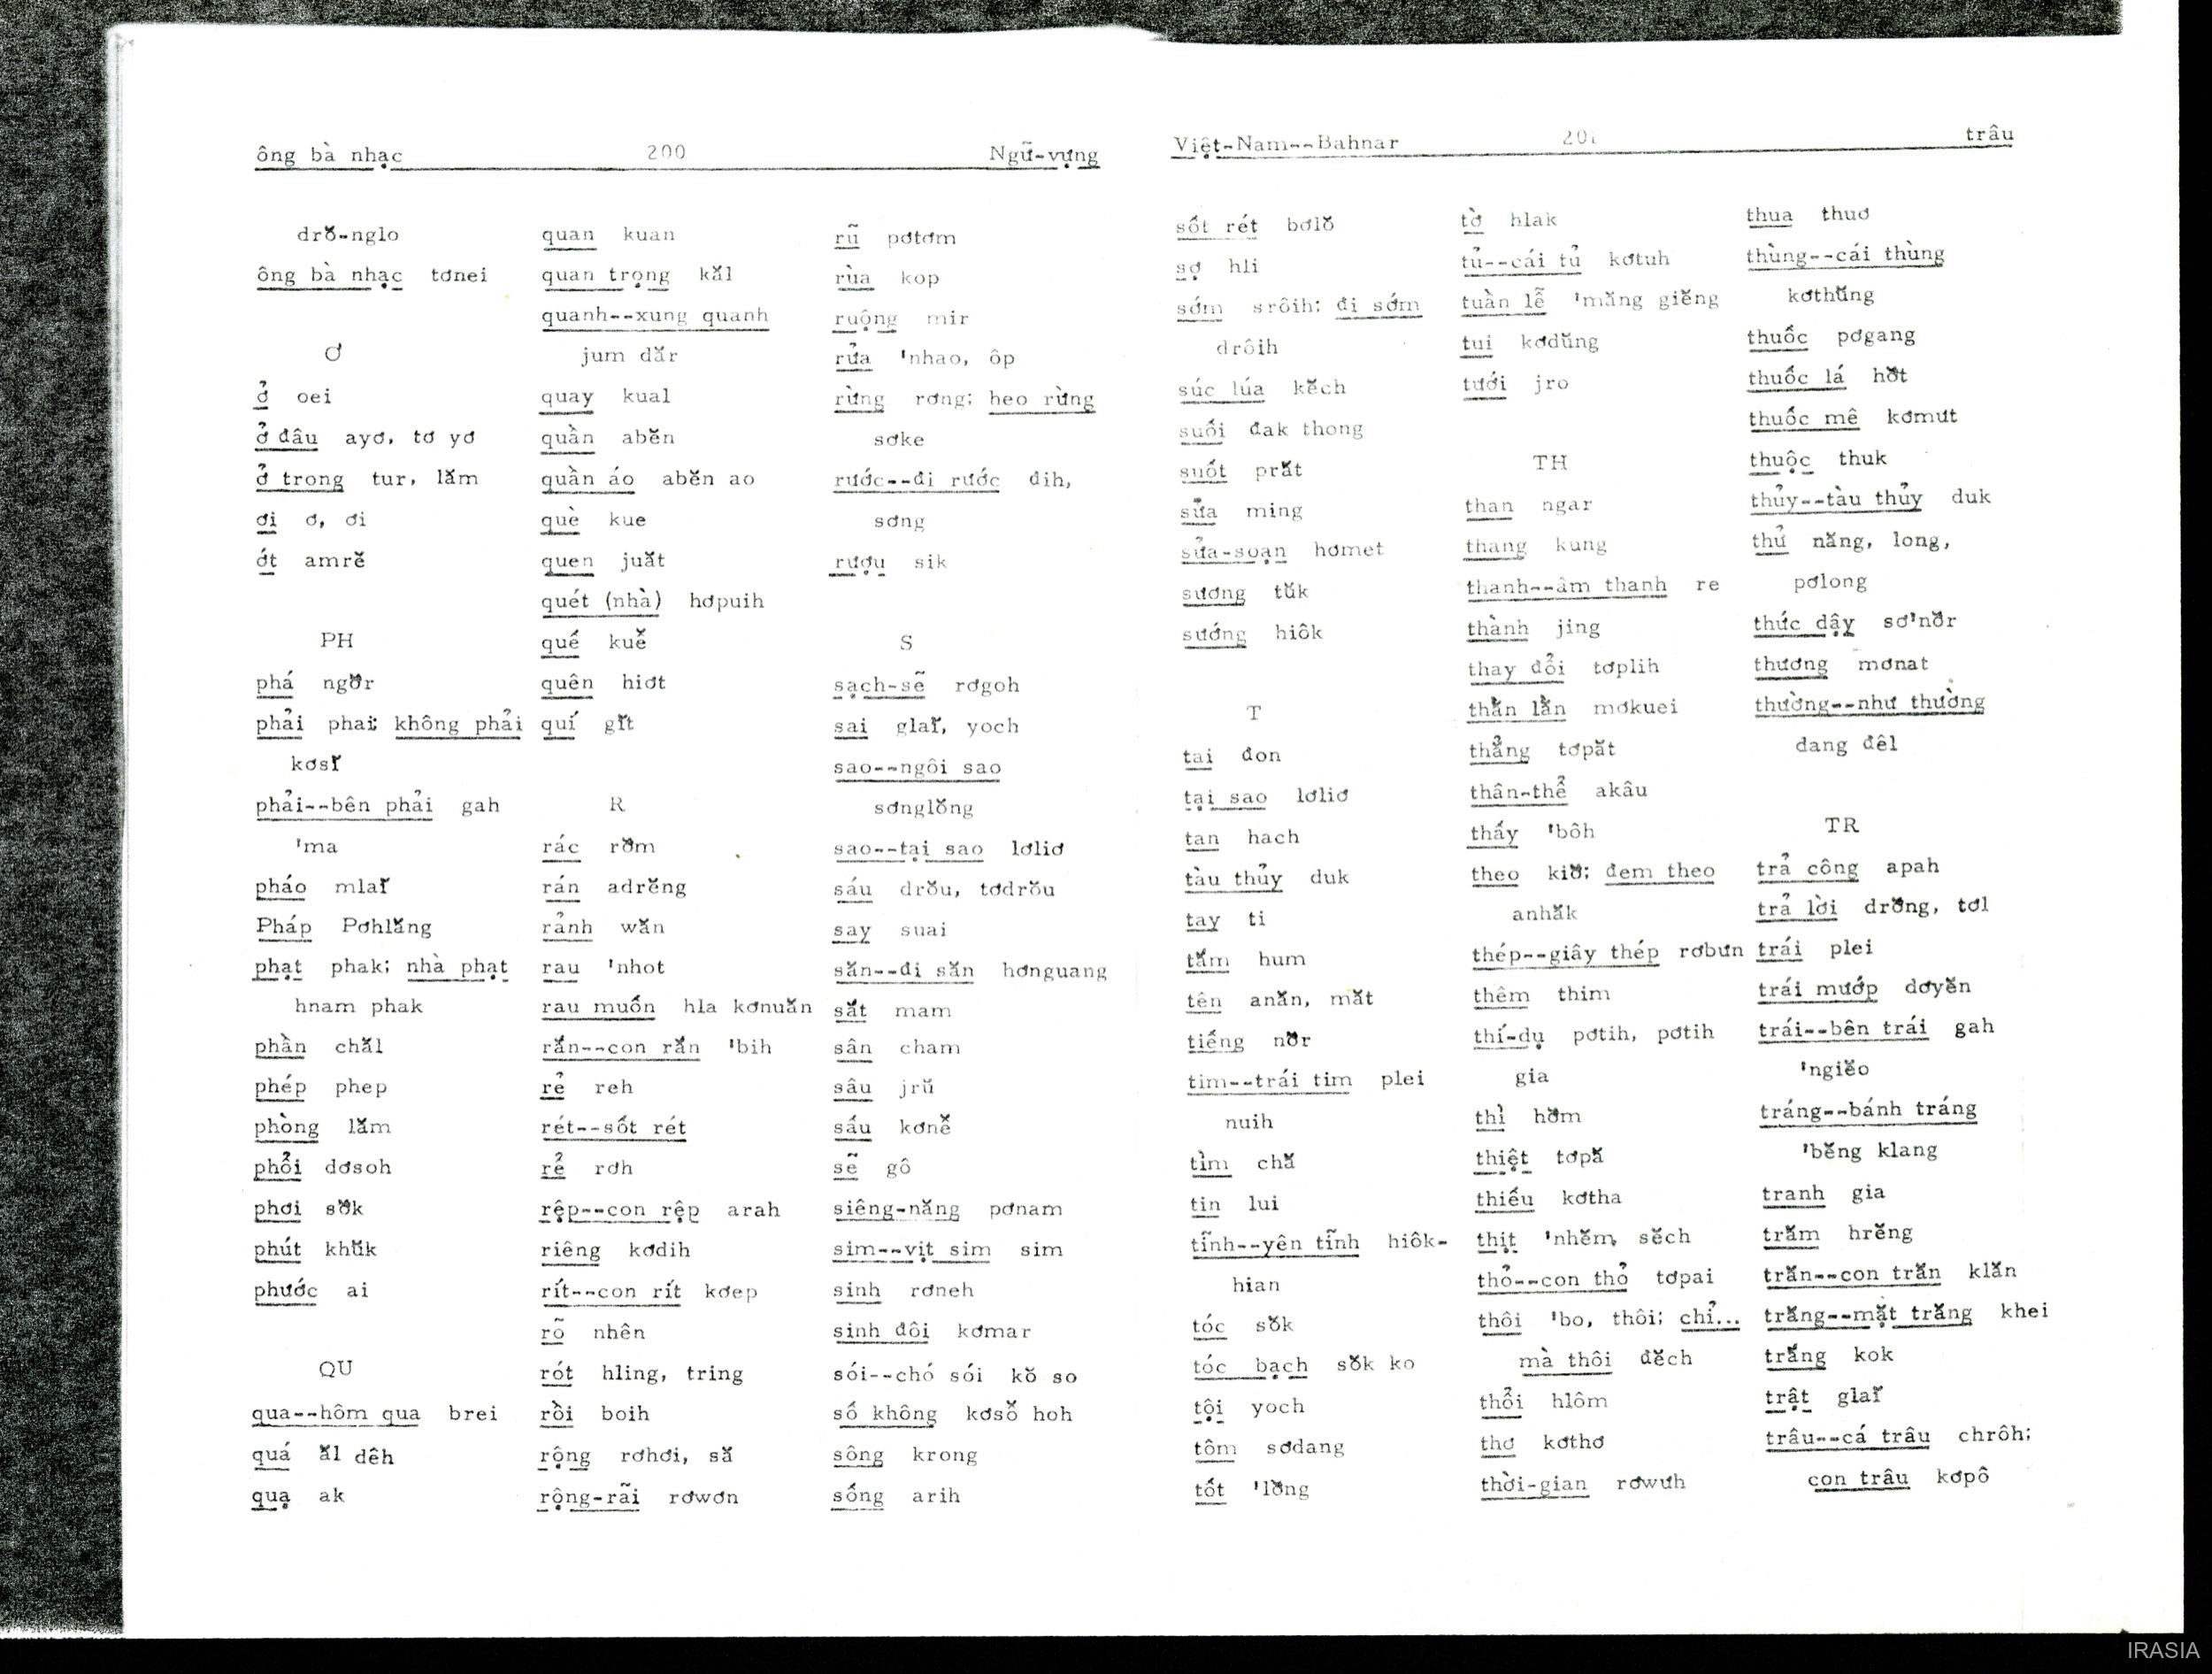 ông bà nhạc 200 Ngữ-vựng
drŏ-nglo
ông bà nhạc tơnei
Ơ
ở oei
ở đâu ayơ, tơ yơ
ở trong tur, lăm
ơi ơ, ơi
ớt amrĕ
PH
phá ngơ̆r
phải phai; không phải
kơsĭ
phải--bên phải gah
'ma
pháo mlaĭ
Pháp Pơhlăng
phạt phak; nhà phạt
hnam phak
phần chăl
phép phep
phòng lăm
phổi dơsoh
phơi sơ̆k
phút khŭk
phước ai
QU
qua--hôm qua brei
quá ăl dêh
quạ ak
quan kuan
quan trọng kăl
quanh--xung quanh
jum dăr
quay kual
quần abĕn
quần áo abĕn ao
què kue
quen juăt
quét (nhà) hơpuih
quế kuê̆
quên hiơt
quí gĭt
R
rác rơ̆m
rán adrĕng
rảnh wăn
rau 'nhot
rau muốn hla kơnuăn
rắn--con rắn 'bih
rẻ reh
rét--sốt rét
rể rơh
rệp--con rệp arah
riêng kơdih
rít--con rít kơep
rõ nhên
rót hling, tring
rồi boih
rộng rơhơi, să
rộng-rãi rơwơn
rũ pơtơm
rùa kop
ruộng mir
rửa 'nhao, ôp
rừng rơng; heo rừng
sơke
rước--đi rước dih,
sơng
rượu sik
S
sạch-sẽ rơgoh
sai glaĭ, yoch
sao--ngôi sao
sơnglŏng
sao--tại sao lơliơ
sáu drŏu, tơdrŏu
say suai
săn--đi săn hơnguang
sắt mam
sân cham
sâu jrŭ
sấu kơnê̆
sẽ gô
siêng-năng pơnam
sim--vịt sim sim
sinh rơneh
sinh đôi kơmar
sói--chó sói kŏ so
số không kơsô̆ hoh
sông krong
sống arih
Việt-Nam--Bahnar 201 trâu
sốt rét bơlŏ
sợ hli
sớm srôih; đi sớm
drôih
súc lúa kĕch
suối đak thong
suốt prăt
sửa ming
sửa-soạn hơmet
sương tŭk
sướng hiôk
T
tai đon
tại sao lơliơ
tan hach
tàu thủy duk
tay ti
tắm hum
tên anăn, măt
tiếng nơ̆r
tim--trái tim plei
nuih
tìm chă
tin lui
tĩnh--yên tĩnh hiôk-
hian
tóc sŏk
tóc bạch sŏk ko
tội yoch
tôm sơdang
tốt 'lơ̆ng
tờ hlak
tủ--cái tủ kơtuh
tuần lễ 'măng giĕng
tui kơdŭng
tưới jro
TH
than ngar
thang kung
thanh--âm thanh re
thành jing
thay đổi tơplih
thằn lằn mơkuei
thẳng tơpăt
thân-thể akâu
thấy 'bôh
theo kiơ̆; đem theo
anhăk
thép--giây thép rơbưn
thêm thim
thí-dụ pơtih, pơtih
gia
thì hơ̆m
thiệt tơpă
thiếu kơtha
thịt 'nhĕm, sĕch
thỏ--con thỏ tơpai
thôi 'bo, thôi; chỉ...
mà thôi dĕch
thổi hlôm
thơ kơthơ
thời-gian rơwưh
thua thuơ
thùng--cái thùng
kơthŭng
thuốc pơgang
thuốc lá hơ̆t
thuốc mê kơmưt
thuộc thuk
thủy--tàu thủy duk
thử năng, long,
pơlong
thức dậy sơ'nơ̆r
thương mơnat
thường--như thường
dang đêl
TR
trả công apah
trả lời drơ̆ng, tơl
trái plei
trái mướp dơyĕn
trái--bên trái gah
'ngiĕo
tráng--bánh tráng
'bĕng klang
tranh gia
trăm hrĕng
trăn--con trăn klăn
trăng--mặt trăng khei
trắng kok
trật glaĭ
trâu--cá trâu chrôh;
con trâu kơpô
IRASIA